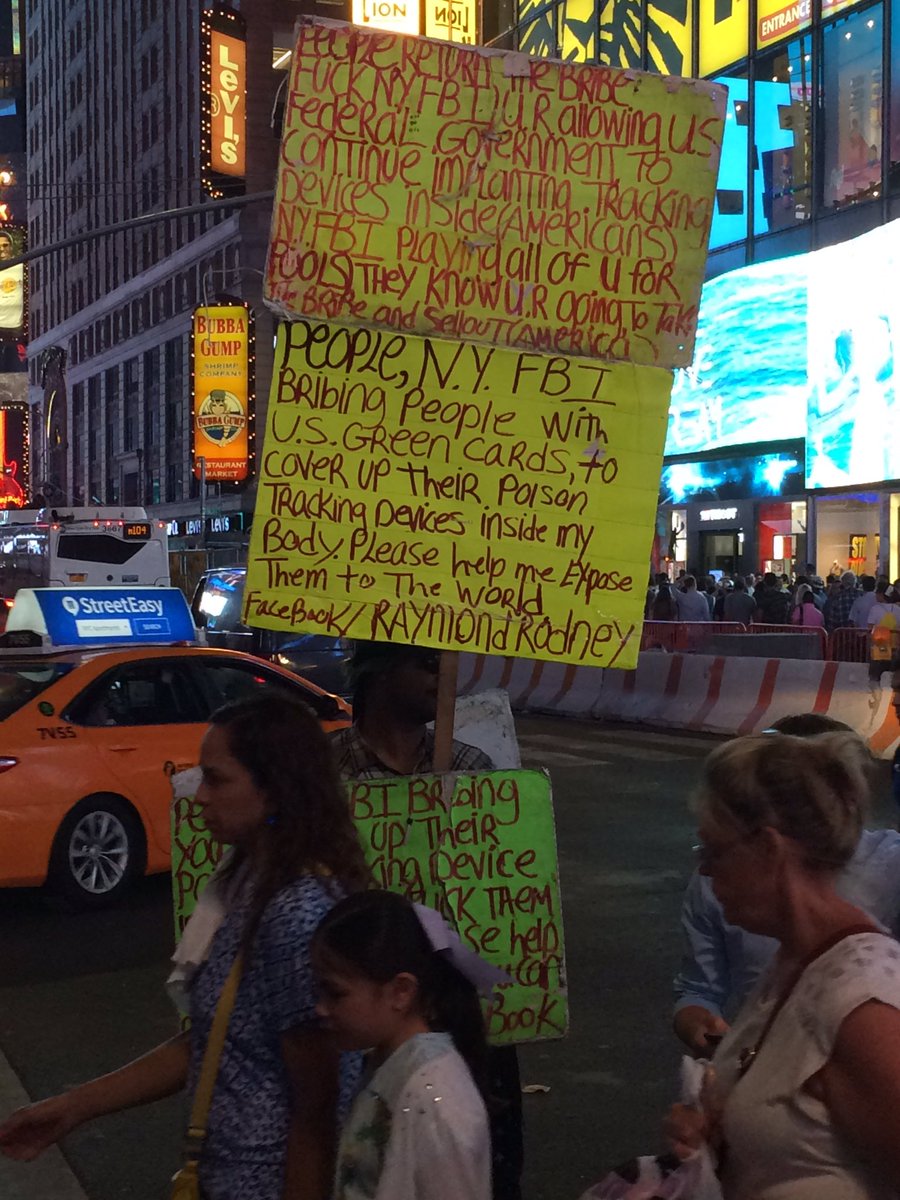 LION
LION
ENTRANCE
LEVI'S
PEOPLE RETURN THE BRIBE
FUCK NY FBI) U.R allowing US
Federal Government TO
CONTINUE IMPLANTING TRACKING
Devices inside (Americans)
NY FBI Playing all of U for
FOOLS) They know U.R going To Take
The Bribe and Sellout (America)
People, N.Y. FBI
Bribing People with
U.S. Green Cards, to
cover up Their Poison
Tracking Devices inside my
Body. Please help me Expose
Them to The World
FaceBook/RAYMOND Rodney
BUBBA
GUMP
SHRIMP
COMPANY
BUBBA GUMP
RESTAURANT
MARKET
LEVI'S
3667
M104
StreetEasy
SEARCH
7V55
BI Bribing
You
up Their
ing Device
THEM
se help
can
Book